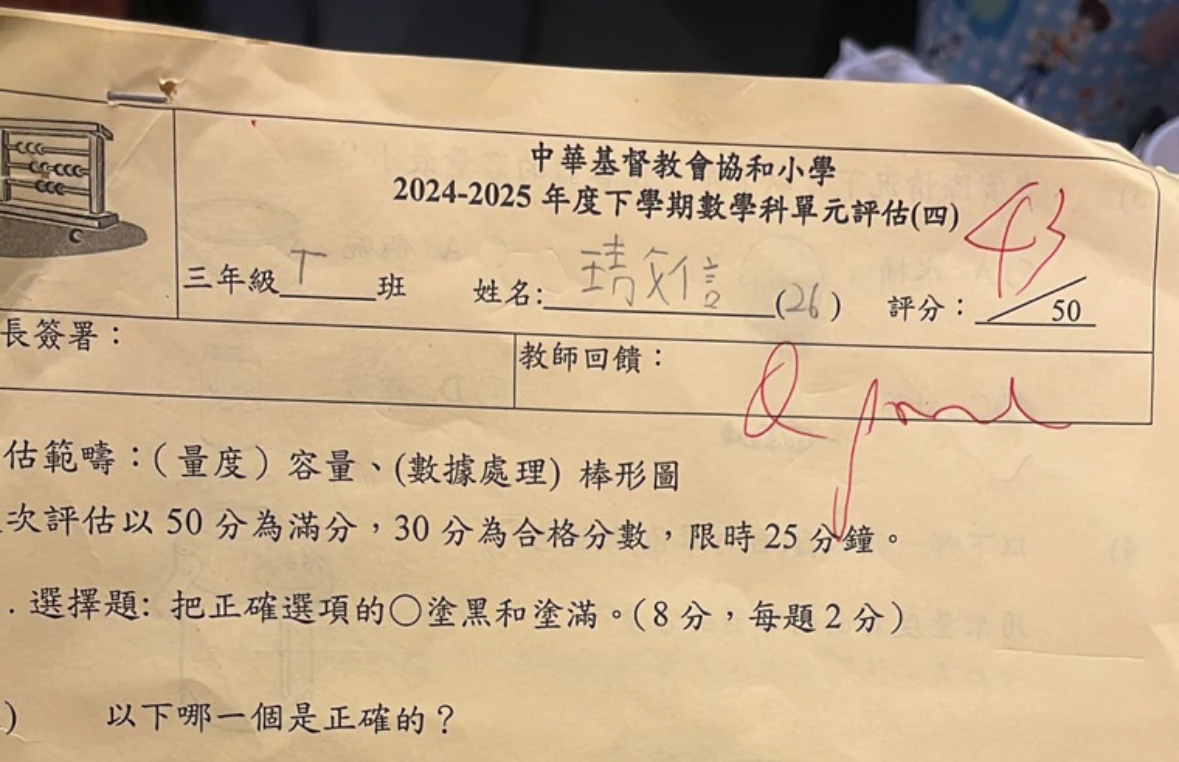 中華基督教會協和小學
2024-2025 年度下學期數學科單元評估(四)
43
三年級 班 姓名: (26) 評分: 50
長簽署:
教師回饋:
估範疇:(量度)容量、(數據處理) 棒形圖
次評估以 50 分為滿分,30 分為合格分數,限時 25 分鐘。
. 選擇題: 把正確選項的○塗黑和塗滿。(8 分,每題 2 分)
) 以下哪一個是正確的?